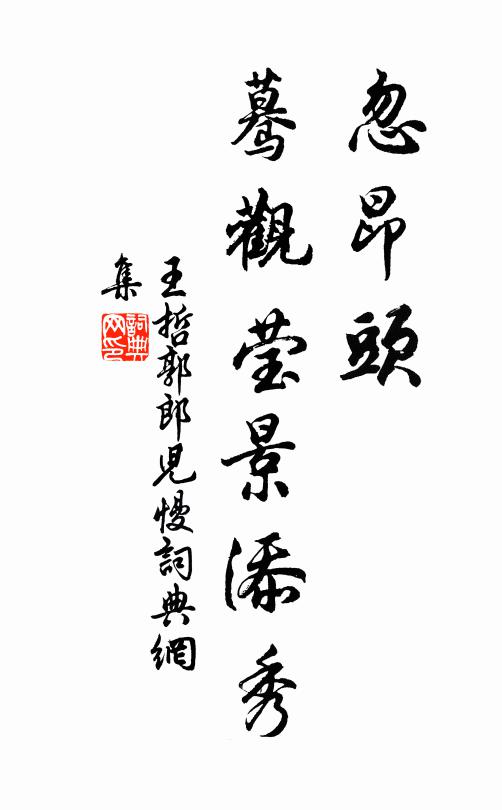 忽昂頭
驀觀莹景添秀
王哲郭郎兒慢詞典網
集
詞典
网印